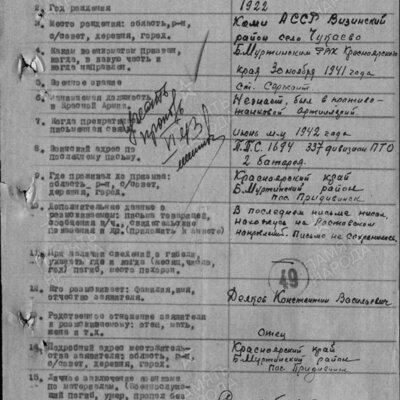 2. Год рождения 1922
3. Место рождения: область, р-н, Коми АССР Визинский
с/совет, деревня, город. район село Чухаево
4. Каким военкоматом призван, Б.Муртинским РВК Красноярского
когда, в какую часть и
когда направлен. края 30 ноября 1941 года
5. Военное звание Ст. Сержант
6. Занимаемая должность Незнает, был в противо-
в Красной Армии. танковой артиллерии.
7. Когда прекратилась
письменная связь Июнь м-ц 1942 года
8. Воинский адрес по П.П.С. 1694 337 дивизион ПТО
последнему письму. 2 батарея.
9. Где проживал до призыва: Красноярский край
область, р-н, с/совет, Б.Муртинский район
деревня, город. пос. Придивинск
10. Дополнительные данные о В последнем письме писал,
разыскиваемом: письма товарищей, нахожусь на Ростовском
сообщения в/ч., свидетельские направлении. Письмо не сохранилось.
показания и др. (приложить к анкете)
11. При наличии сведений о гибели,
указать где и когда (месяц, число,
год) погиб, место похорон.
49
12. Кто разыскивает: фамилия, имя,
отчество заявителя. Делков Константин Васильевич
13. Родственное отношение заявителя
к разыскиваемому: отец, мать,
жена и т.д. Отец
14. Подробный адрес местожитель- Красноярский край
ства заявителя: область, р-н, Б.Муртинский район
с/совет, деревня, город. пос. Придивинск
15. Личное заключение военкома
по материалам. (Военнослужа-
щий погиб, умер, пропал без